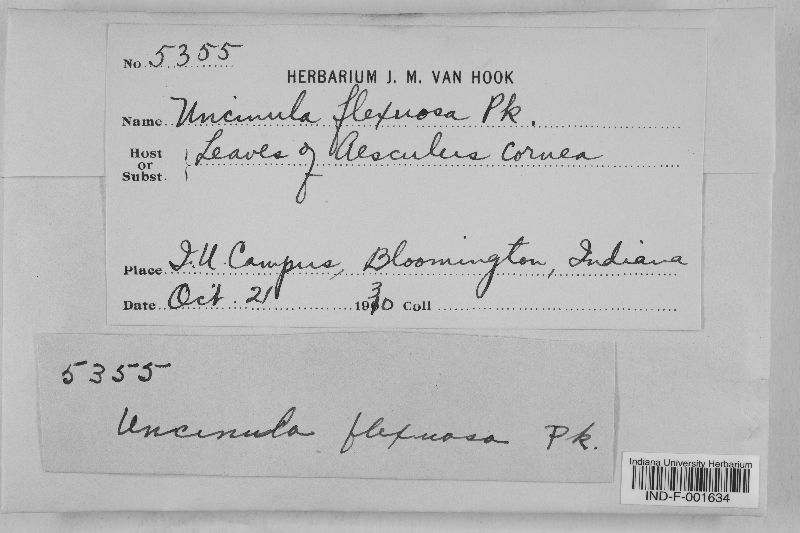 No. 5355
HERBARIUM J. M. VAN HOOK
Name Uncinula flexuosa Pk.
Host or Subst. Leaves of Aesculus cornea
Place I.U. Campus, Bloomington, Indiana
Date Oct. 21 1930 Coll
5355
Uncinula flexuosa Pk.
Indiana University Herbarium
IND-F-001634